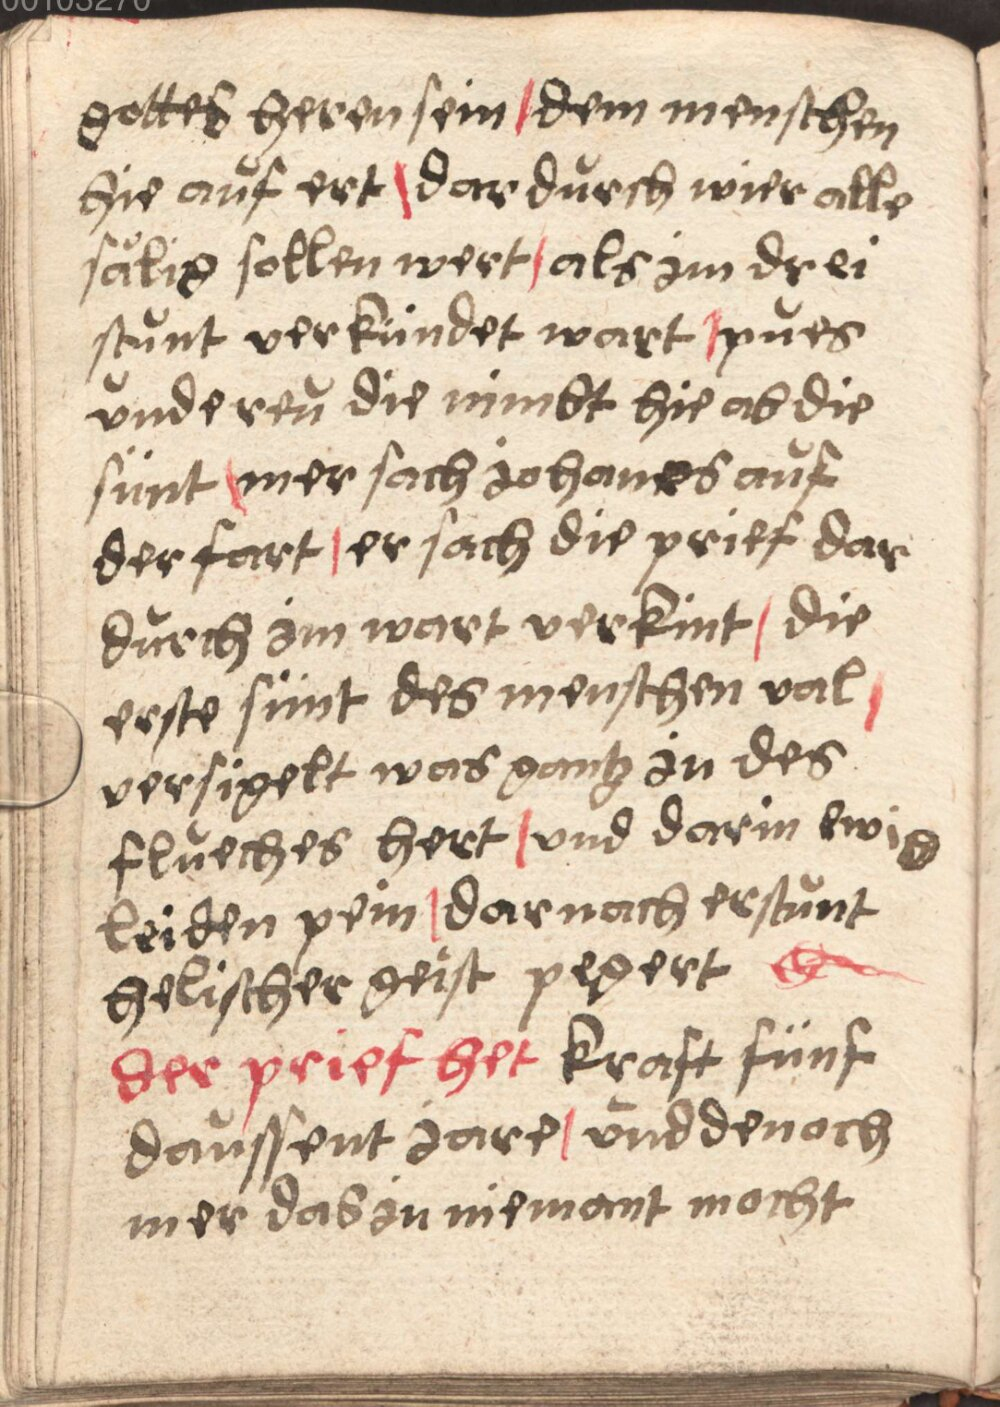 gottes heren sein / dem menschen
hie auf ert / dar durch wier alle
sälig sollen wert / als im drei
stunt verkündet wart / pues
undereu die nimbt hie ab die
sünt / mer sach johanes auf
der fart / er sach die prief dar
durch im wart verkint / die
erste sünt des menschen val /
versigelt was gantz in des
flueches hert / und darin ewig
leiden pein / dar nach erstunt
helischer geist pegert
der prief het kraft fünf
daussent jare / und denoch
mer das in niemant mocht